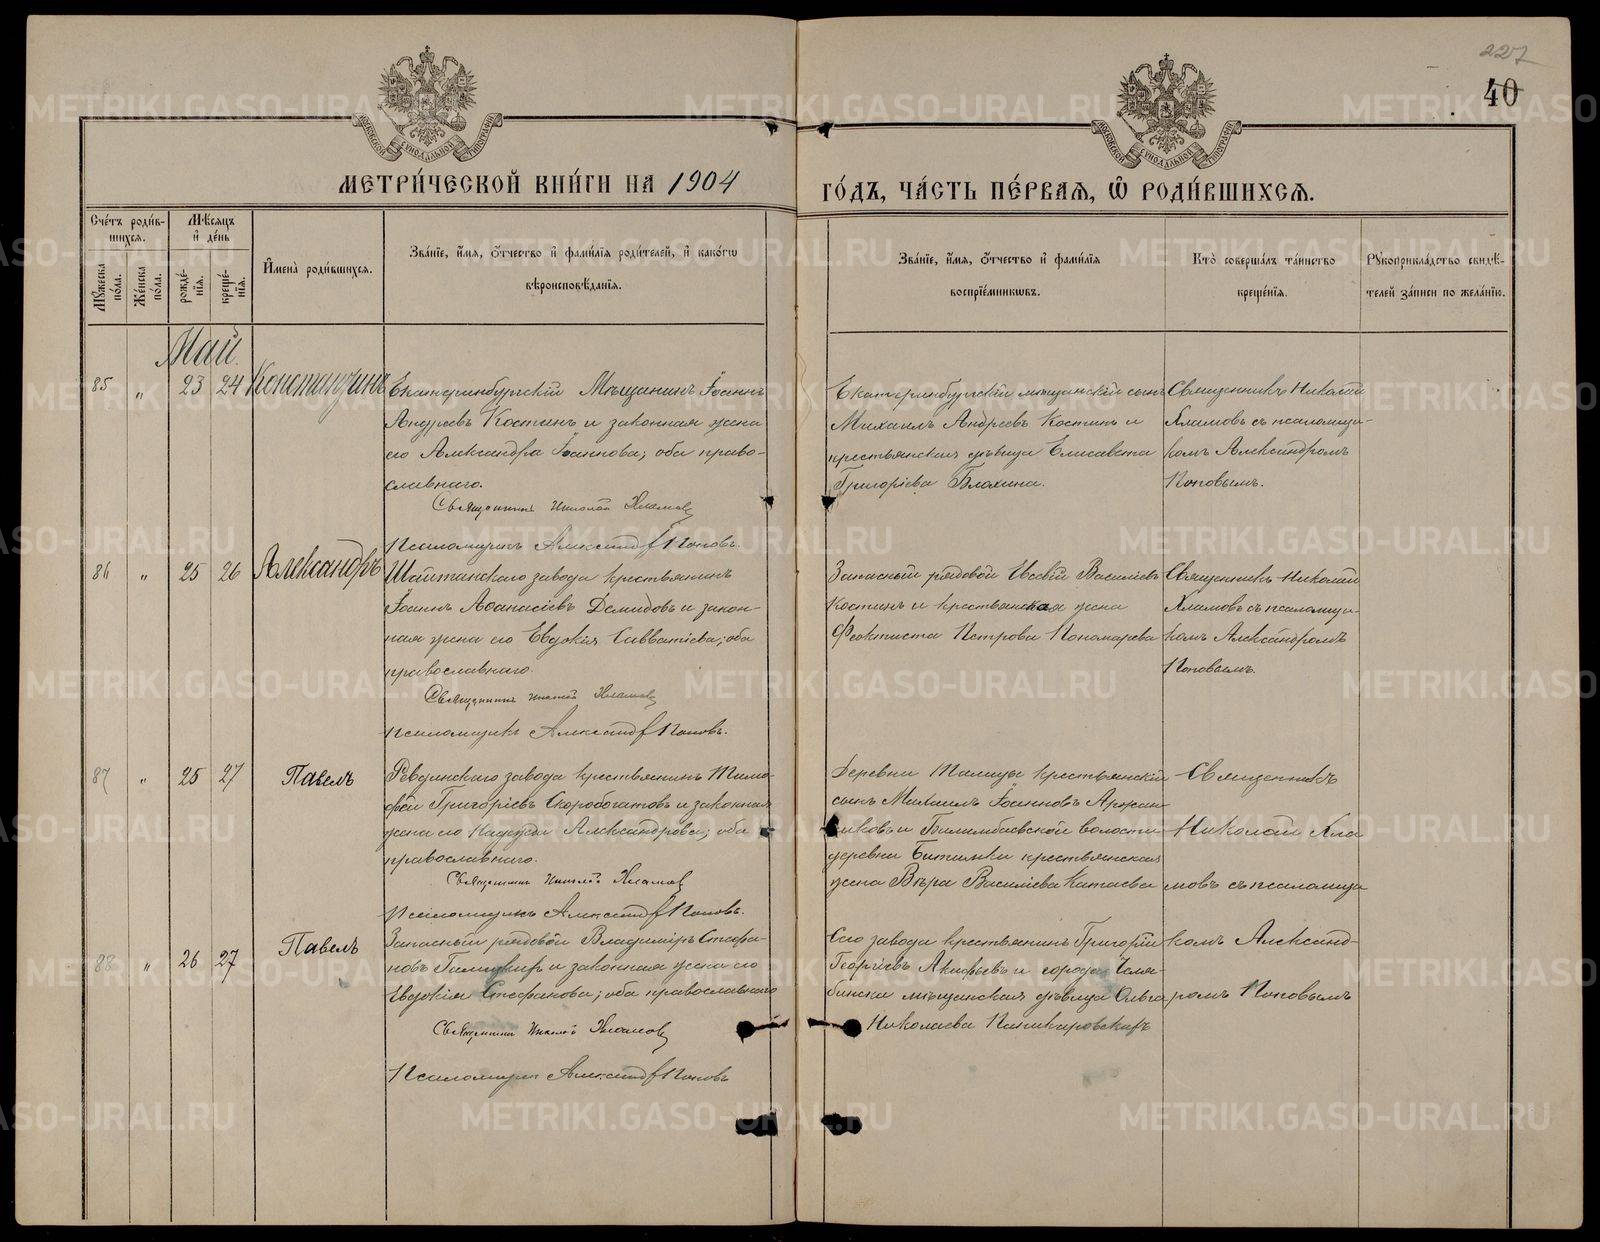 227
40
МОСКОВСКОЙ СѴНОДАЛЬНОЙ ТИПОГРАФІИ
МОСКОВСКОЙ СѴНОДАЛЬНОЙ ТИПОГРАФІИ
МЕТРИ́ЧЕСКОЙ КНИ́ГИ НА 1904
ГО́ДЪ, ЧА́СТЬ ПЕ́РВАѦ, Ѿ РОДИ́ВШИХСѦ.
Сче́тъ роди́в-
шихся.
Мѣ́сяцъ
и҆ де́нь
Мꙋ́жеска по́ла.
Же́нска по́ла.
рожде́-
нїя.
креще́-
нїя.
И҆мена̀ роди́вшихся.
Зва́нїе, и҆́мя, ѻ҆́тчество и҆ фами́лїя роди́телей, и҆ како́гѡ
вѣроисповѣ́данїя.
Зва́нїе, и҆́мя, ѻ҆́тчество и҆ фами́лїя
воспрїе́мникѡвъ.
Кто̀ соверша́лъ та́инство
креще́нїя.
Рꙋкоприкла́дство свидѣ́-
телей за́писи по жела́нїю.
Май.
85 „ 23 24 Константинъ
Екатеринбургскій Мѣщанинъ Іоаннъ
Андреевъ Костинъ и законная жена
его Александра Іоаннова; оба право-
славнаго.
Священникъ Николай Хламовъ
Псаломщикъ Александр Поповъ.
Екатеринбургскій мѣщанскій сынъ
Михаилъ Андреевъ Костинъ и
крестьянская дѣвица Елисавета
Григоріева Блохина.
Священникъ Николай
Хламовъ съ псаломщи-
комъ Александромъ
Поповымъ.
86 „ 25 26 Александръ
Шайтанскаго завода крестьянинъ
Іоаннъ Аѳанасіевъ Демидовъ и закон-
ная жена его Евдокія Савватіева; оба
православнаго.
Священникъ Николай Хламовъ
Псаломщикъ Александр Поповъ.
Запасный рядовой Василіевъ
Костинъ и крестьянская жена
Феоктиста Петрова Пономарева
Священникъ Николай
Хламовъ съ псаломщи-
комъ Александромъ
Поповымъ.
87 „ 25 27 Павелъ
Ревдинскаго завода крестьянинъ Тимо-
фей Григоріевъ Скоробогатовъ и законная
жена его Надежда Александрова; оба
православнаго.
Священникъ Николай Хламовъ
Псаломщикъ Александр Поповъ.
Деревни Талицы крестьянскій
сынъ Михаилъ Іоанновъ
и Билимбаевской волости
деревни Битимки крестьянская
жена Вѣра Василіева Катаева
Священникъ
Николай Хла
мовъ съ псаломщи
88 „ 26 27 Павелъ
Запасный рядовой Владиміръ Стефа-
новъ и законная жена его
Евдокія Стефанова; оба православнаго
Священникъ Николай Хламовъ
Псаломщикъ Александр Поповъ
Сего завода крестьянинъ Григорій
Георгіевъ Акифьевъ и города Челя-
бинска мѣщанская дѣвица Ольга
Николаева
комъ Александ-
ромъ Поповымъ
METRIKI.GASO-URAL.RU